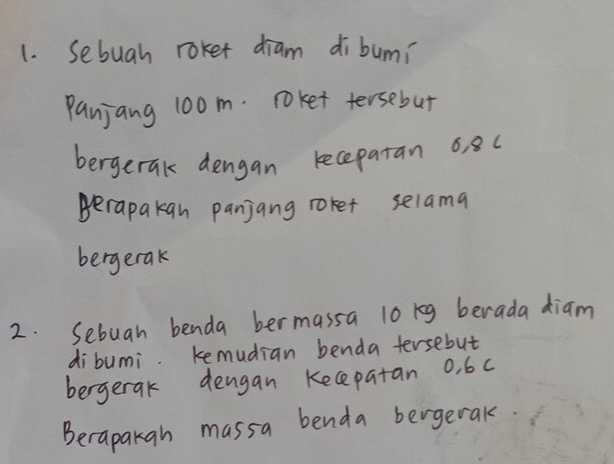 1. Sebuah roket diam di bumi
Panjang 100 m. roket tersebut
bergerak dengan kecepatan 0,8 c
Berapakah panjang roket selama
bergerak
2. Sebuah benda bermassa 10 kg berada diam
di bumi. kemudian benda tersebut
bergerak dengan kecepatan 0,6 c
Berapakah massa benda bergerak.